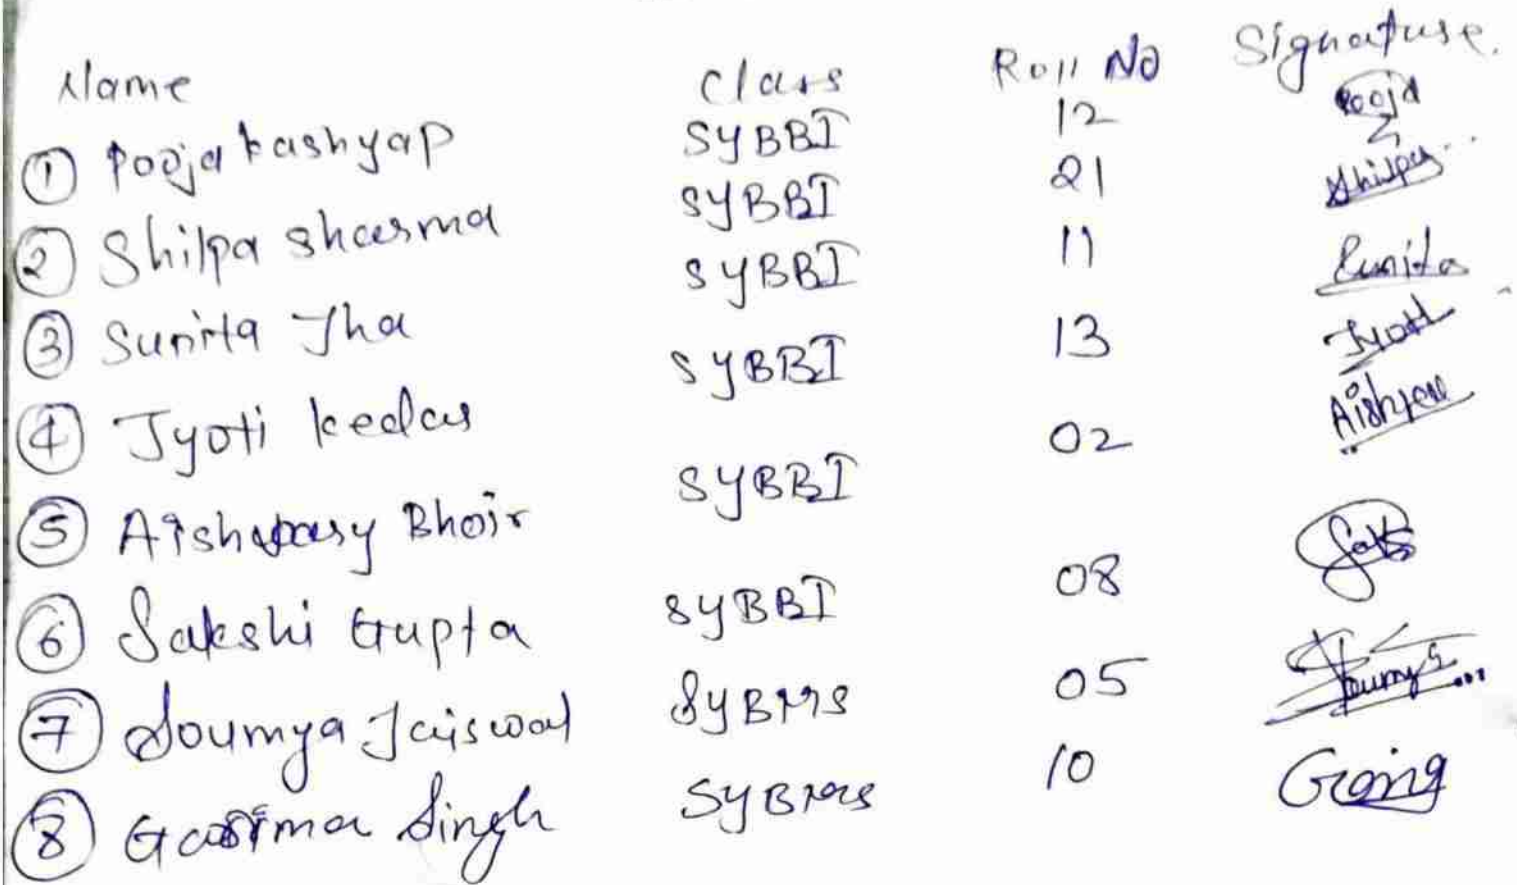 Name Class Roll No Signature.
① Pooja Kashyap SYBBI 12 Pooja
② Shilpa Sharma SYBBI 21 Shilpa
③ Sunita Jha SYBBI 11 Sunita
④ Jyoti Kedar SYBBI 13 Jyoti
⑤ Bhoir SYBBI 02
⑥ Sakshi Gupta SYBBI 08
⑦ Soumya Jaiswal SYBMS 05 Soumya
⑧ Garima Singh SYBMS 10